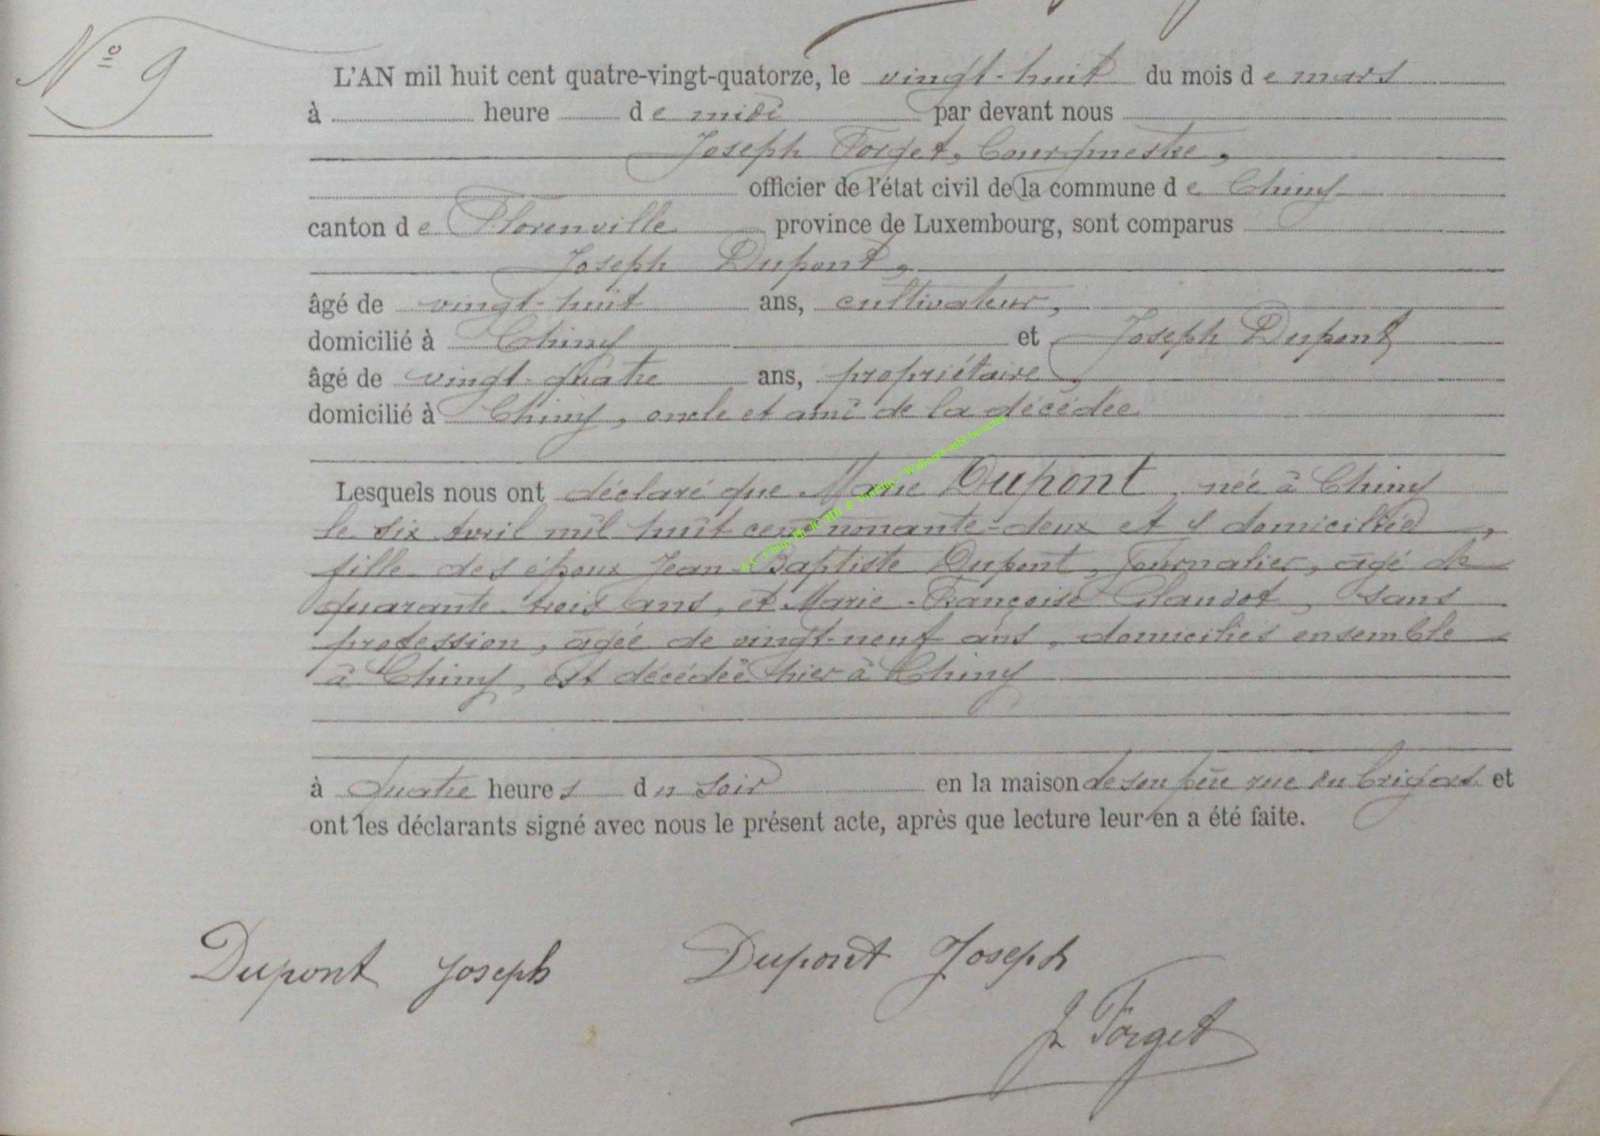 N° 9
L'AN mil huit cent quatre-vingt-quatorze, le vingt-huit du mois de mars
à heure de midi par devant nous
Joseph Forget, bourgmestre,
officier de l'état civil de la commune de Chiny
canton de Florenville province de Luxembourg, sont comparus
Joseph Dupont,
âgé de vingt-huit ans, cultivateur,
domicilié à Chiny et Joseph Dupont
âgé de vingt-quatre ans, propriétaire,
domicilié à Chiny, oncle et ami de la décédée
Lesquels nous ont déclaré que Marie Dupont, née à Chiny
le six avril mil huit cent nonante-deux et y domiciliée,
fille des époux Jean-Baptiste Dupont, journalier, âgé de
quarante-trois ans, et Marie-Françoise Claudot, sans
profession, âgée de vingt-neuf ans, domiciliés ensemble
à Chiny, est décédée hier à Chiny
à quatre heures du soir en la maison de son père rue du et
ont les déclarants signé avec nous le présent acte, après que lecture leur en a été faite.
Dupont Joseph Dupont Joseph
J Forget